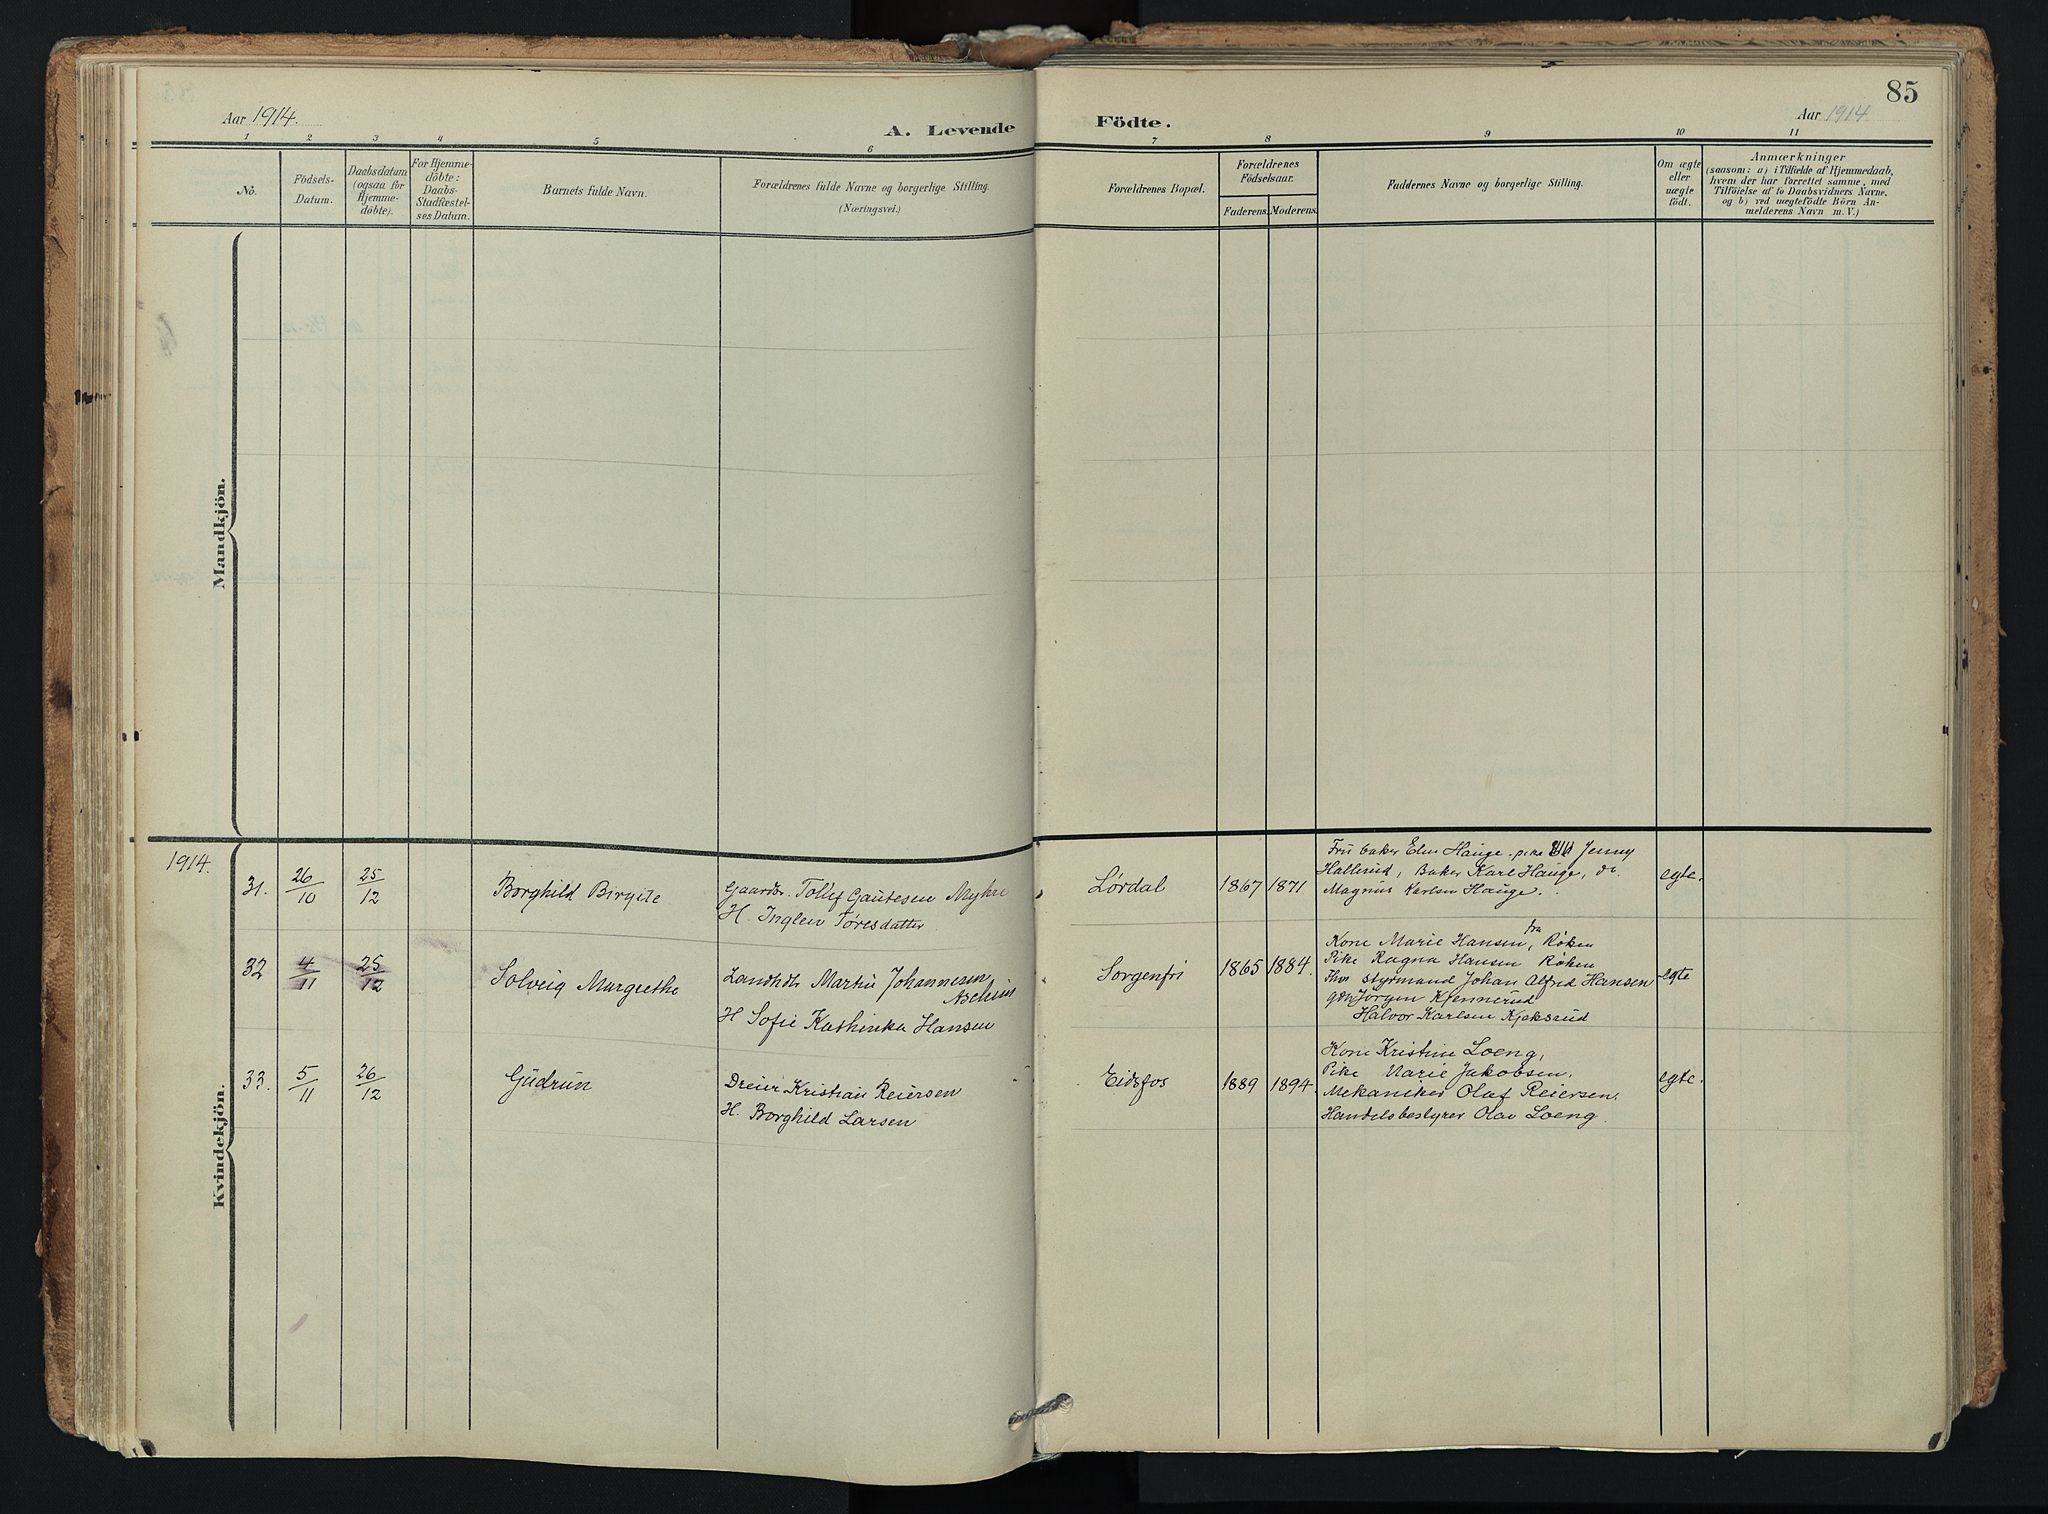 85
Aar 1914.
A. Levende
Födte.
Aar 1914
1 2 3 4 5 6 7 8 9 10 11
No.
Födsels-
Datum.
Daabsdatum
(ogsaa for
Hjemme-
döbte).
For Hjemme-
döbte:
Daabs-
Stadfæstel-
ses Datum.
Barnets fulde Navn.
Forældrenes fulde Navne og borgerlige Stilling.
(Næringsvei.)
Forældrenes Bopæl.
Forældrenes
Födselsaar.
Faderens. Moderens.
Faddernes Navne og borgerlige Stilling.
Om ægte
eller
uægte
født.
Anmærkninger
(saasom: a) i Tilfælde af Hjemmedaab,
hvem der har forrettet samme, med
Tilföielse af to Daabsvidners Navne.
og b) ved uægtefödte Börn An-
melderens Navn m. V.)
Mandkjön.
Kvindekjön.
1914.
31.
26/10
25/12
Borghild Birgite
Gaardbr. Tollef Gautesen Myhre
H. Inglen Töresdatter
Lørdal
1867 1871
Fru baker Elen Hauge. pike Jenny
Hallerud, Baker Karl Hauge, do.
Magnus Karlsen Hauge.
egte.
32
4/11
25/12
Solveig Margrethe
Landhdl. Martin Johannesen
H Sofie Kathinka Hansen
Sorgenfri
1865 1884.
fra
Kone Marie Hansen, Røken
Pike Ragna Hansen Røken
styrmand Johan Alfred Hansen
Jørgen Kjennerud
Halvor Karlsen Kjeksrud
egte
33.
5/11
26/12
Gudrun
Dreier Kristian Reiersen
H. Borghild Larsen
Eidsfos
1889 1894.
Kone Kristine Loeng,
Pike Marie Jakobsen,
Mekaniker Olaf Reiersen,
Handelsbestyrer Olav Loeng
egte.